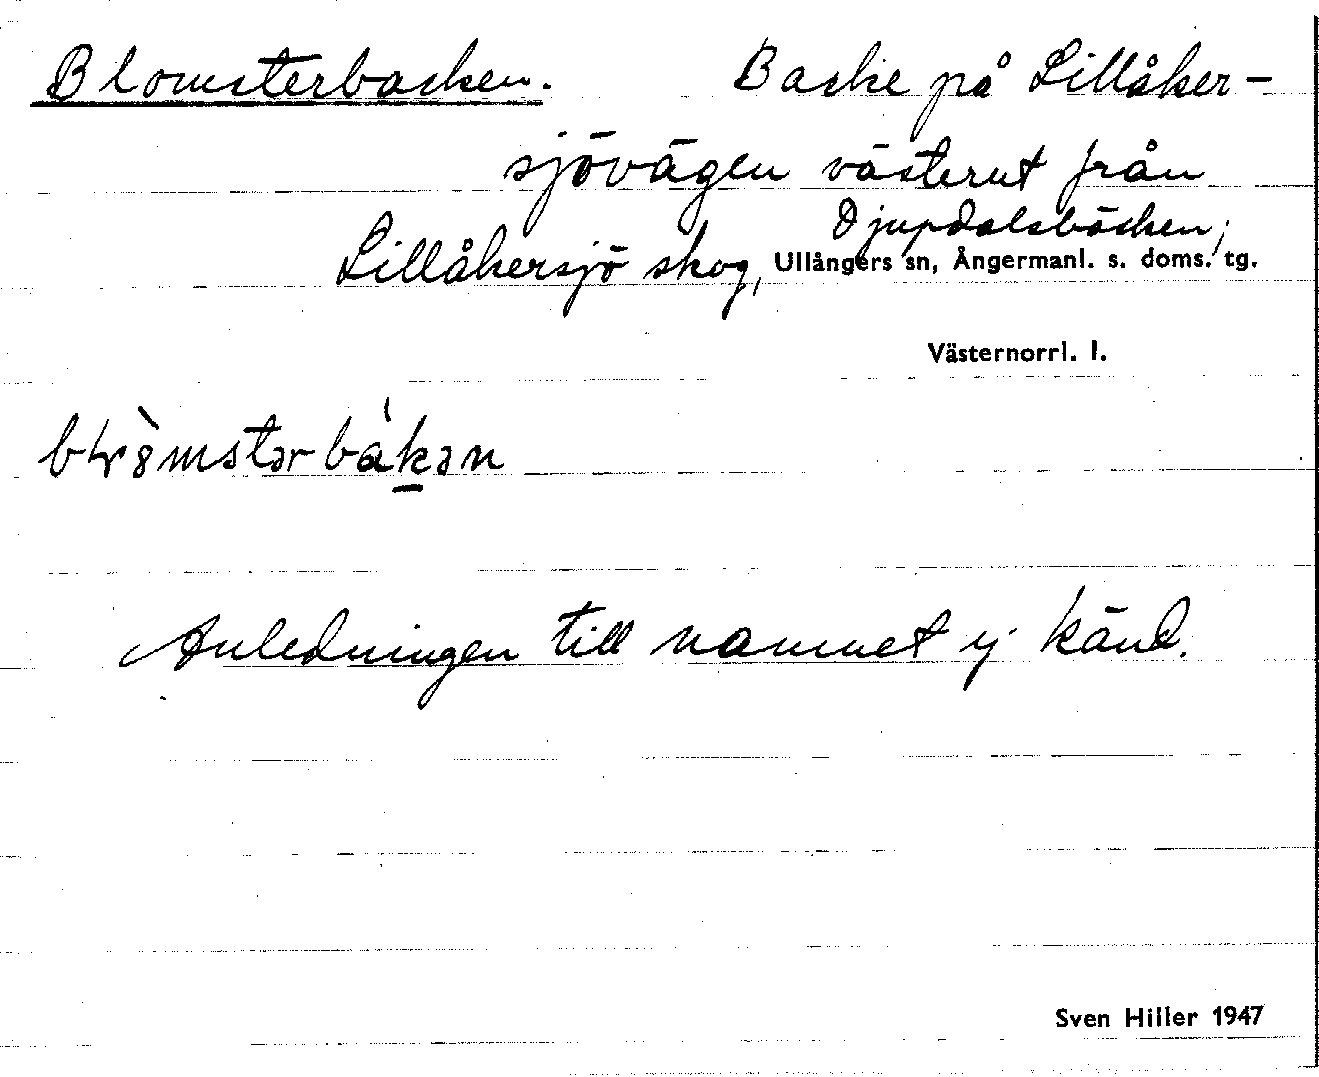 Blomsterbacken. Backe på Lillåker-
sjövägen västerut från
Djupdalsbäcken,
Lillåkersjö skog, Ullångers sn, Ångermanl. s. doms. tg.
Västernorrl. l.
Anledningen till namnet ej känd.
Sven Hiller 1947